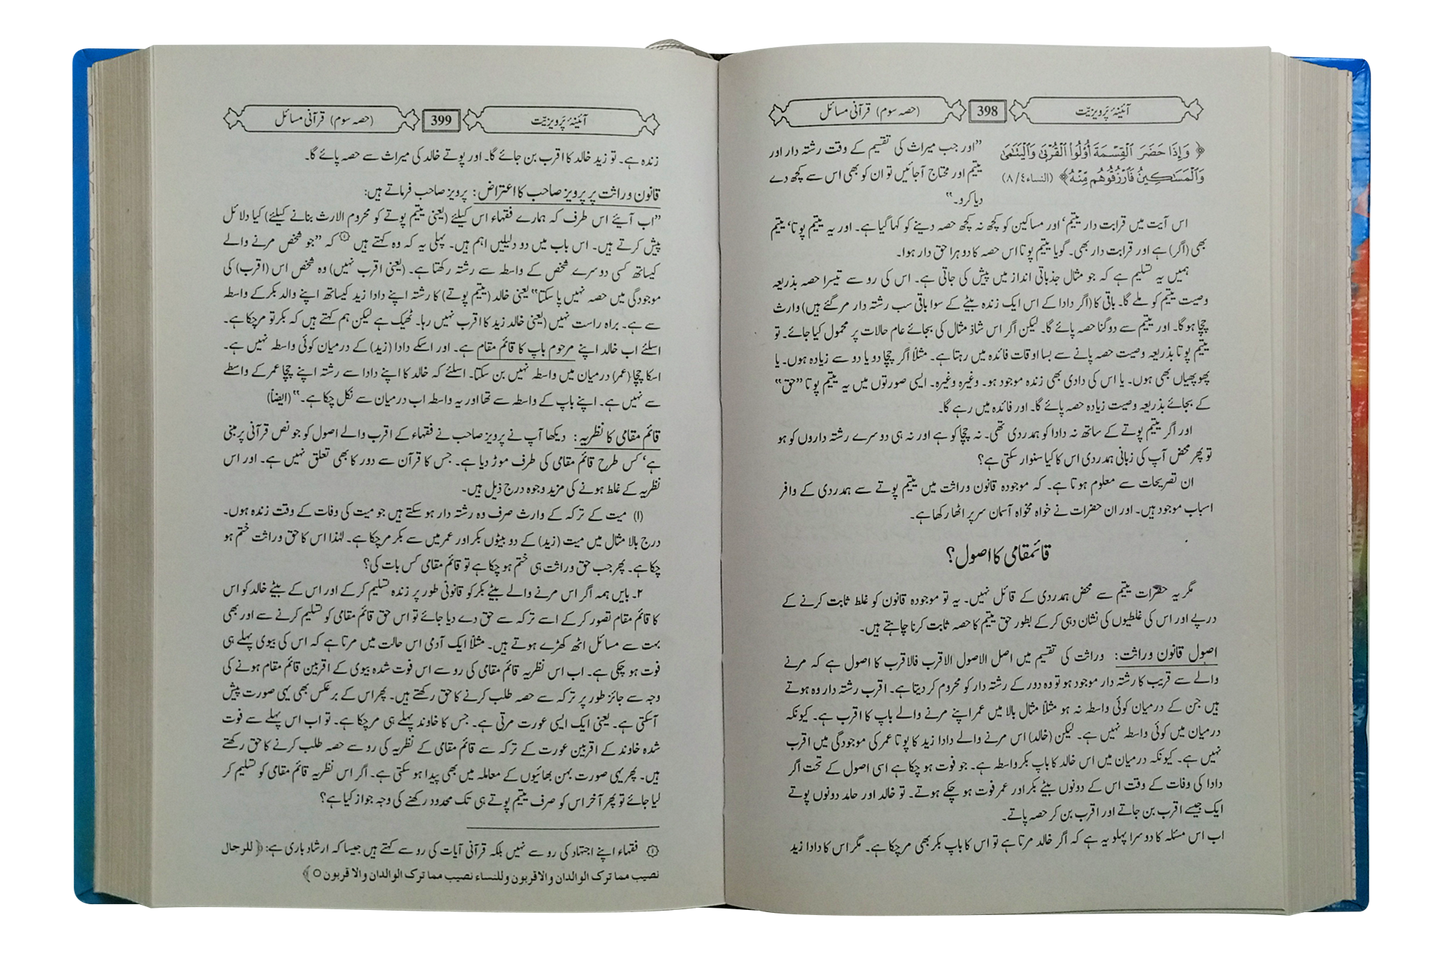 آئینۂ پرویزیّت 398 (حصہ سوم) قرآنی مسائل
﴿ وَإِذَا حَضَرَ الْقِسْمَةَ أُوْلُوا الْقُرْبَىٰ وَالْيَتَـٰمَىٰ
وَالْمَسَـٰكِينُ فَارْزُقُوهُم مِّنْهُ﴾ (النساء۸/۴)
”اور جب میراث کی تقسیم کے وقت رشتہ دار اور
یتیم اور محتاج آجائیں تو ان کو بھی اس سے کچھ دے
دیا کرو۔“
اس آیت میں قرابت دار یتیم‘ اور مساکین کو کچھ نہ کچھ حصہ دینے کو کہا گیا ہے۔ اور یہ یتیم پوتا‘ یتیم
بھی (اگر) ہے اور قرابت دار بھی۔ گویا یتیم پوتا اس حصہ کا دوہرا حق دار ہوا۔
ہمیں یہ تسلیم ہے کہ جو مثال جذباتی انداز میں پیش کی جاتی ہے۔ اس کی رو سے تیسرا حصہ بذریعہ
وصیت یتیم کو ملے گا۔ باقی کا (اگر دادا کے اس ایک زندہ بیٹے کے سوا باقی سب رشتہ دار مر گئے ہیں) وارث
چچا ہو گا۔ اور یتیم سے دوگنا حصہ پائے گا۔ لیکن اگر اس شاذ مثال کی بجائے عام حالات پر محمول کیا جائے۔ تو
یتیم پوتا بذریعہ وصیت حصہ پانے سے بسا اوقات فائدہ میں رہتا ہے۔ مثلاً اگر چچا دو یا دو سے زیادہ ہوں۔ یا
پھوپھیاں بھی ہوں۔ یا اس کی دادی بھی زندہ موجود ہو۔ وغیرہ وغیرہ۔ ایسی صورتوں میں یہ یتیم پوتا ”حق“
کے بجائے بذریعہ وصیت زیادہ حصہ پائے گا۔ اور فائدہ میں رہے گا۔
اور اگر یتیم پوتے کے ساتھ نہ دادا کو ہمدردی تھی۔ نہ چچا کو ہے اور نہ ہی دوسرے رشتہ داروں کو ہو
تو پھر محض آپ کی زبانی ہمدردی اس کا کیا سنوار سکتی ہے؟
ان تصریحات سے معلوم ہوتا ہے۔ کہ موجودہ قانون وراثت میں یتیم پوتے سے ہمدردی کے وافر
اسباب موجود ہیں۔ اور ان حضرات نے خواہ مخواہ آسمان سر پر اٹھا رکھا ہے۔
قائمقامی کا اصول؟
مگر یہ حضرات یتیم سے محض ہمدردی کے قائل نہیں۔ یہ تو موجودہ قانون کو غلط ثابت کرنے کے
درپے اور اس کی غلطیوں کی نشان دہی کر کے بطور حق یتیم کا حصہ ثابت کرنا چاہتے ہیں۔
اصول قانون وراثت: وراثت کی تقسیم میں اصل الاصول الاقرب فالاقرب کا اصول ہے کہ مرنے
والے سے قریب کا رشتہ دار موجود ہو تو وہ دور کے رشتہ دار کو محروم کر دیتا ہے۔ اقرب رشتہ دار وہ ہوتے
ہیں جن کے درمیان کوئی واسطہ نہ ہو مثلاً مثال بالا میں عمر اپنے مرنے والے باپ کا اقرب ہے۔ کیونکہ
درمیان میں کوئی واسطہ نہیں ہے۔ لیکن (خالد) اس مرنے والے دادا زید کا پوتا عمر کی موجودگی میں اقرب
نہیں ہے۔ کیونکہ درمیان میں اس خالد کا باپ بکر واسطہ ہے۔ جو فوت ہو چکا ہے اسی اصول کے تحت اگر
دادا کی وفات کے وقت اس کے دونوں بیٹے بکر اور عمر فوت ہو چکے ہوتے۔ تو خالد اور حامد دونوں پوتے
ایک جیسے اقرب بن جاتے اور اقرب بن کر حصہ پاتے۔
اب اس مسئلہ کا دوسرا پہلو یہ ہے کہ اگر خالد مرتا ہے تو اس کا باپ بکر بھی مر چکا ہے۔ مگر اس کا دادا زید
آئینۂ پرویزیّت 399 (حصہ سوم) قرآنی مسائل
زندہ ہے۔ تو زید خالد کا اقرب بن جائے گا۔ اور پوتے خالد کی میراث سے حصہ پائے گا۔
قانون وراثت پر پرویز صاحب کا اعتراض: پرویز صاحب فرماتے ہیں:
”اب آیئے اس طرف کہ ہمارے فقہاء اس کیلئے (یعنی یتیم پوتے کو محروم الارث بنانے کیلئے) کیا دلائل
پیش کرتے ہیں۔ اس باب میں دو دلیلیں اہم ہیں۔ پہلی یہ کہ وہ کہتے ہیں ① کہ ”جو شخص مرنے والے
کیساتھ کسی دوسرے شخص کے واسطہ سے رشتہ رکھتا ہے۔ (یعنی اقرب نہیں) وہ شخص اس (اقرب) کی
موجودگی میں حصہ نہیں پا سکتا“ یعنی خالد (یتیم پوتے) کا رشتہ اپنے دادا زید کیساتھ اپنے والد بکر کے واسطہ
سے ہے۔ براہ راست نہیں (یعنی خالد زید کا اقرب نہیں رہا۔ ٹھیک ہے لیکن ہم کہتے ہیں کہ بکر تو مر چکا ہے۔
اسلئے اب خالد اپنے مرحوم باپ کا قائم مقام ہے۔ اور اسکے دادا (زید) کے درمیان کوئی واسطہ نہیں ہے۔
اسکا چچا (عمر) درمیان میں واسطہ نہیں بن سکتا۔ اسلئے کہ خالد کا اپنے دادا سے رشتہ اپنے چچا عمر کے واسطے
سے نہیں ہے۔ اپنے باپ کے واسطہ سے تھا اور یہ واسطہ اب درمیان سے نکل چکا ہے۔“ (ایضاً)
قائم مقامی کا نظریہ: دیکھا آپ نے پرویز صاحب نے فقہاء کے اقرب والے اصول کو جو نص قرآنی پر مبنی
ہے‘ کس طرح قائم مقامی کی طرف موڑ دیا ہے۔ جس کا قرآن سے دور کا بھی تعلق نہیں ہے۔ اور اس
نظریہ کے غلط ہونے کی مزید وجوہ درج ذیل ہیں۔
(۱) میت کے ترکہ کے وارث صرف وہ رشتہ دار ہو سکتے ہیں جو میت کی وفات کے وقت زندہ ہوں۔
درج بالا مثال میں میت (زید) کے دو بیٹوں بکر اور عمر میں سے بکر مر چکا ہے۔ لہٰذا اس کا حق وراثت ختم ہو
چکا ہے۔ پھر جب حق وراثت ہی ختم ہو چکا ہے تو قائم مقامی کس بات کی؟
۲۔ بایں ہمہ اگر اس مرنے والے بیٹے بکر کو قانونی طور پر زندہ تسلیم کر کے اور اس کے بیٹے خالد کو اس
کا قائم مقام تصور کر کے اسے ترکہ سے حق دے دیا جائے تو اس حق قائم مقامی کو تسلیم کرنے سے اور بھی
بہت سے مسائل اٹھ کھڑے ہوتے ہیں۔ مثلاً ایک آدمی اس حالت میں مرتا ہے کہ اس کی بیوی پہلے ہی
فوت ہو چکی ہے۔ اب اس نظریہ قائم مقامی کی رو سے اس فوت شدہ بیوی کے اقربین قائم مقام ہونے کی
وجہ سے جائز طور پر ترکہ سے حصہ طلب کرنے کا حق رکھتے ہیں۔ پھر اس کے برعکس بھی یہی صورت پیش
آسکتی ہے۔ یعنی ایک ایسی عورت مرتی ہے۔ جس کا خاوند پہلے ہی مر چکا ہے۔ تو اب اس پہلے سے فوت
شدہ خاوند کے اقربین عورت کے ترکہ سے قائم مقامی کے نظریہ کی رو سے حصہ طلب کرنے کا حق رکھتے
ہیں۔ پھر یہی صورت بہن بھائیوں کے معاملہ میں بھی پیدا ہو سکتی ہے۔ اگر اس نظریہ قائم مقامی کو تسلیم کر
لیا جائے تو پھر آخر اس کو صرف یتیم پوتے ہی تک محدود رکھنے کی وجہ جواز کیا ہے؟
① فقہاء اپنے اجتہاد کی رو سے نہیں بلکہ قرآنی آیات کی رو سے کہتے ہیں جیسا کہ ارشاد باری ہے: ﴿ للرجال
نصیب مما ترک الوالدان والاقربون وللنساء نصیب مما ترک الوالدان والاقربون ○ ﴾